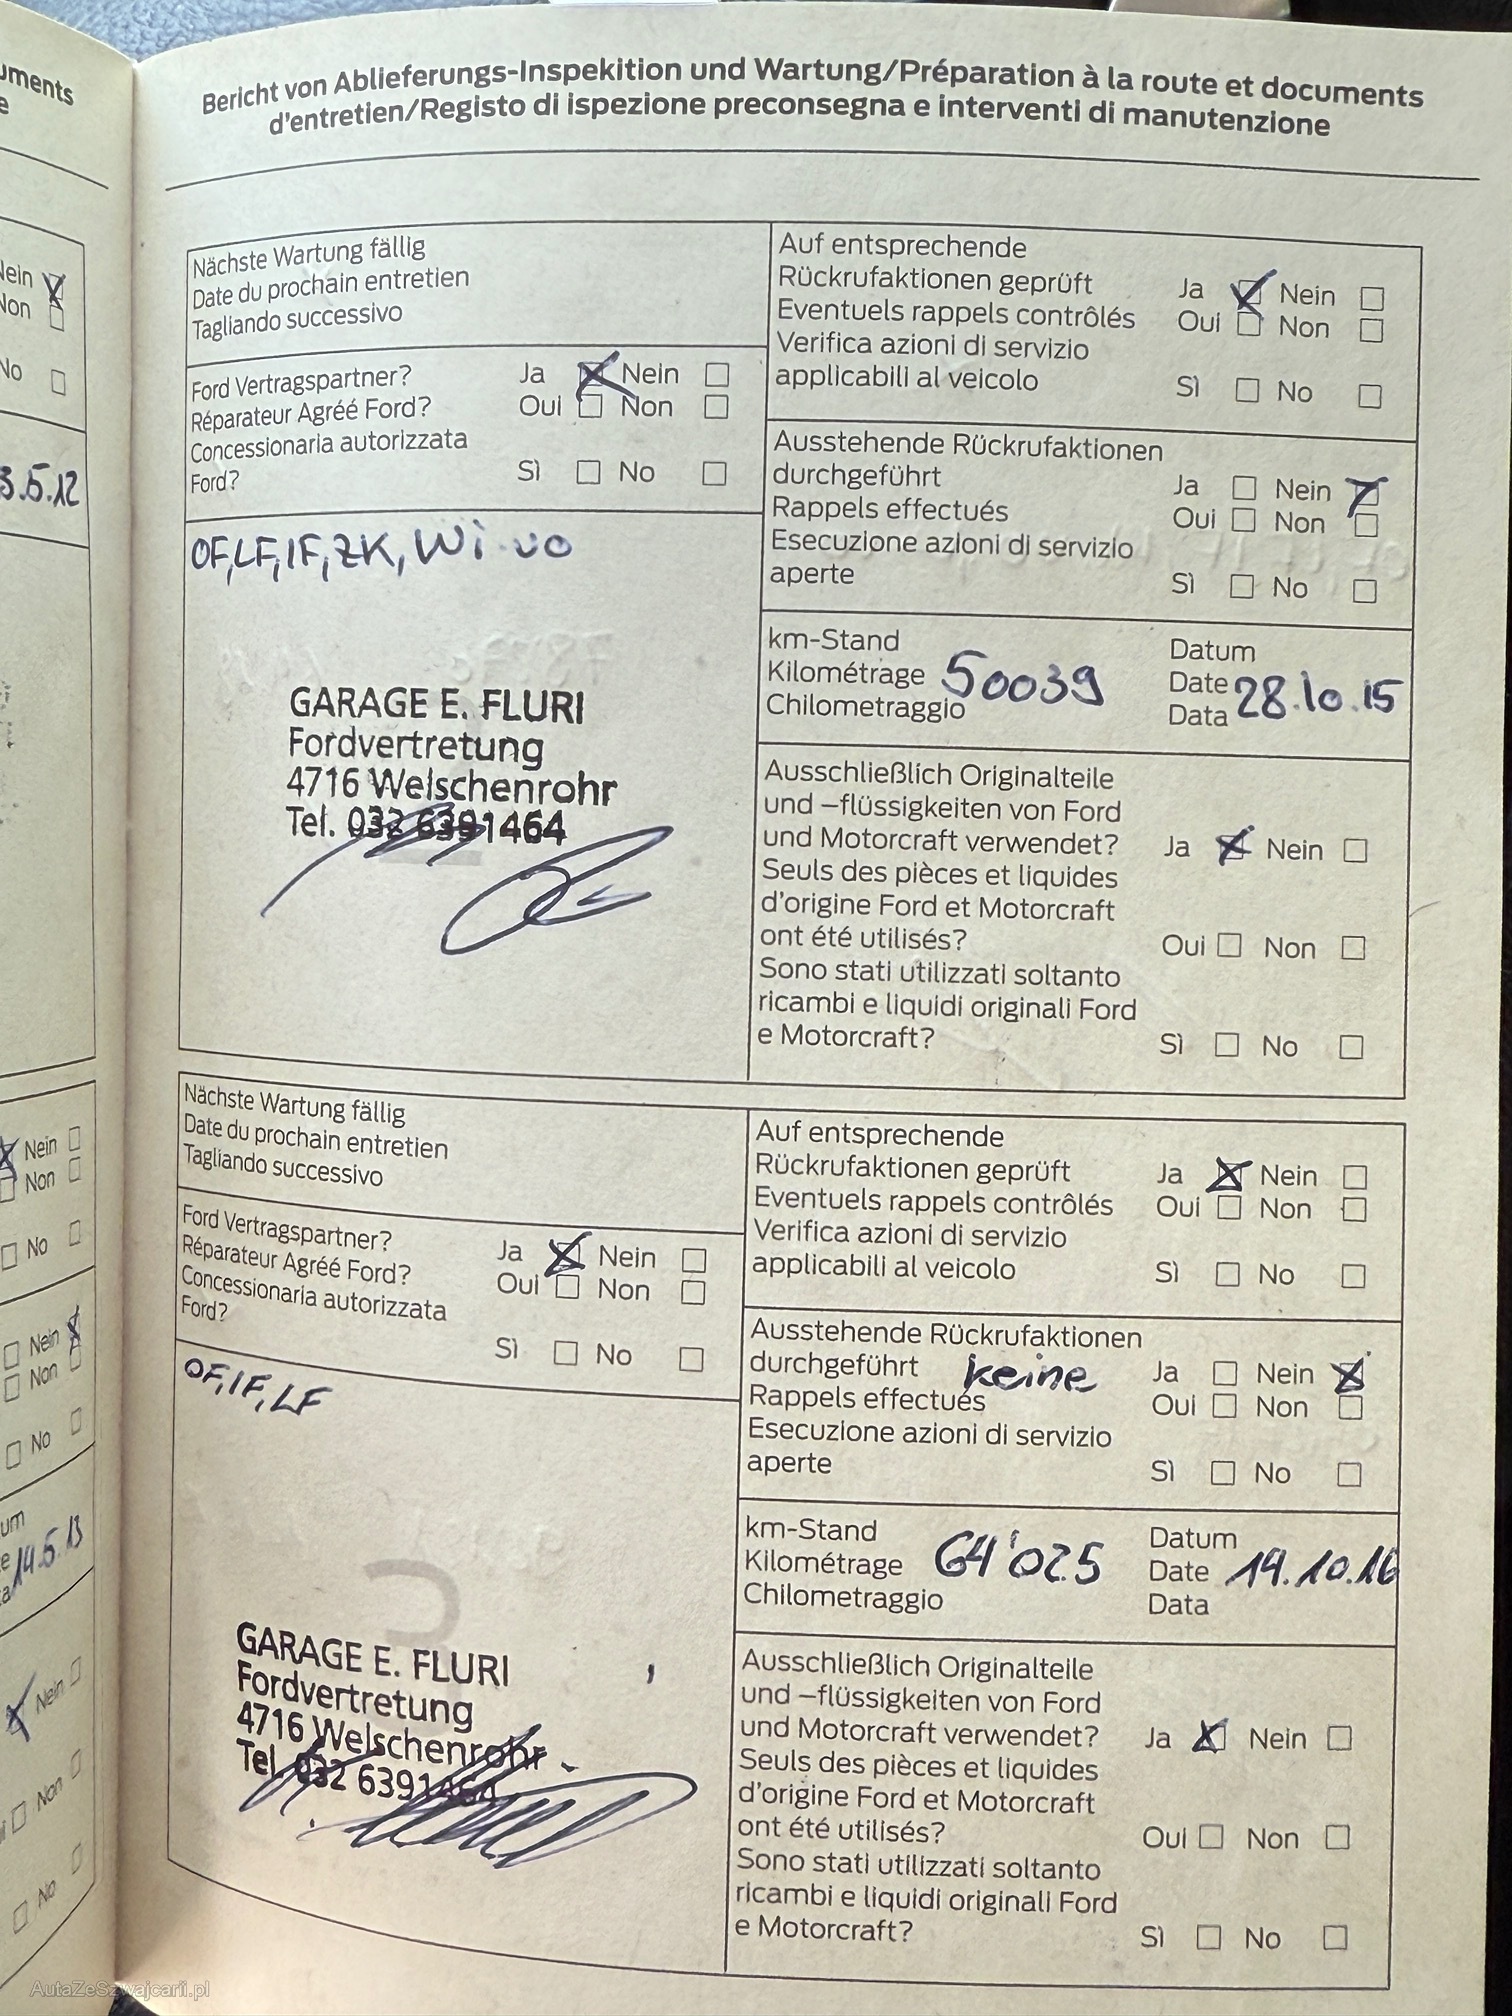 uments
e
Nein
Non
No
3.5.12
Nein
Non
No
Nein
Non
No
um
e 14.5.13
a
Nein
Non
No
Bericht von Ablieferungs-Inspekition und Wartung/Préparation à la route et documents
d'entretien/Registo di ispezione preconsegna e interventi di manutenzione
Nächste Wartung fällig
Date du prochain entretien
Tagliando successivo
Ford Vertragspartner? Ja Nein
Réparateur Agréé Ford? Oui Non
Concessionaria autorizzata
Ford? Sì No
OF, LF, IF, ZK, Wi
GARAGE E. FLURI
Fordvertretung
4716 Welschenrohr
Tel. 032 6391464
Auf entsprechende
Rückrufaktionen geprüft Ja Nein
Eventuels rappels contrôlés Oui Non
Verifica azioni di servizio
applicabili al veicolo Sì No
Ausstehende Rückrufaktionen
durchgeführt Ja Nein
Rappels effectués Oui Non
Esecuzione azioni di servizio
aperte Sì No
km-Stand Datum
Kilométrage 50039 Date 28.10.15
Chilometraggio Data
Ausschließlich Originalteile
und –flüssigkeiten von Ford
und Motorcraft verwendet? Ja Nein
Seuls des pièces et liquides
d'origine Ford et Motorcraft
ont été utilisés? Oui Non
Sono stati utilizzati soltanto
ricambi e liquidi originali Ford
e Motorcraft? Sì No
Nächste Wartung fällig
Date du prochain entretien
Tagliando successivo
Ford Vertragspartner? Ja Nein
Réparateur Agréé Ford? Oui Non
Concessionaria autorizzata
Ford? Sì No
OF, IF, LF
GARAGE E. FLURI
Fordvertretung
4716 Welschenrohr
Tel. 032 6391464
Auf entsprechende
Rückrufaktionen geprüft Ja Nein
Eventuels rappels contrôlés Oui Non
Verifica azioni di servizio
applicabili al veicolo Sì No
Ausstehende Rückrufaktionen
durchgeführt keine Ja Nein
Rappels effectués Oui Non
Esecuzione azioni di servizio
aperte Sì No
km-Stand Datum
Kilométrage 64'025 Date 19.10.16
Chilometraggio Data
Ausschließlich Originalteile
und –flüssigkeiten von Ford
und Motorcraft verwendet? Ja Nein
Seuls des pièces et liquides
d'origine Ford et Motorcraft
ont été utilisés? Oui Non
Sono stati utilizzati soltanto
ricambi e liquidi originali Ford
e Motorcraft? Sì No
AutaZeSzwajcarii.pl